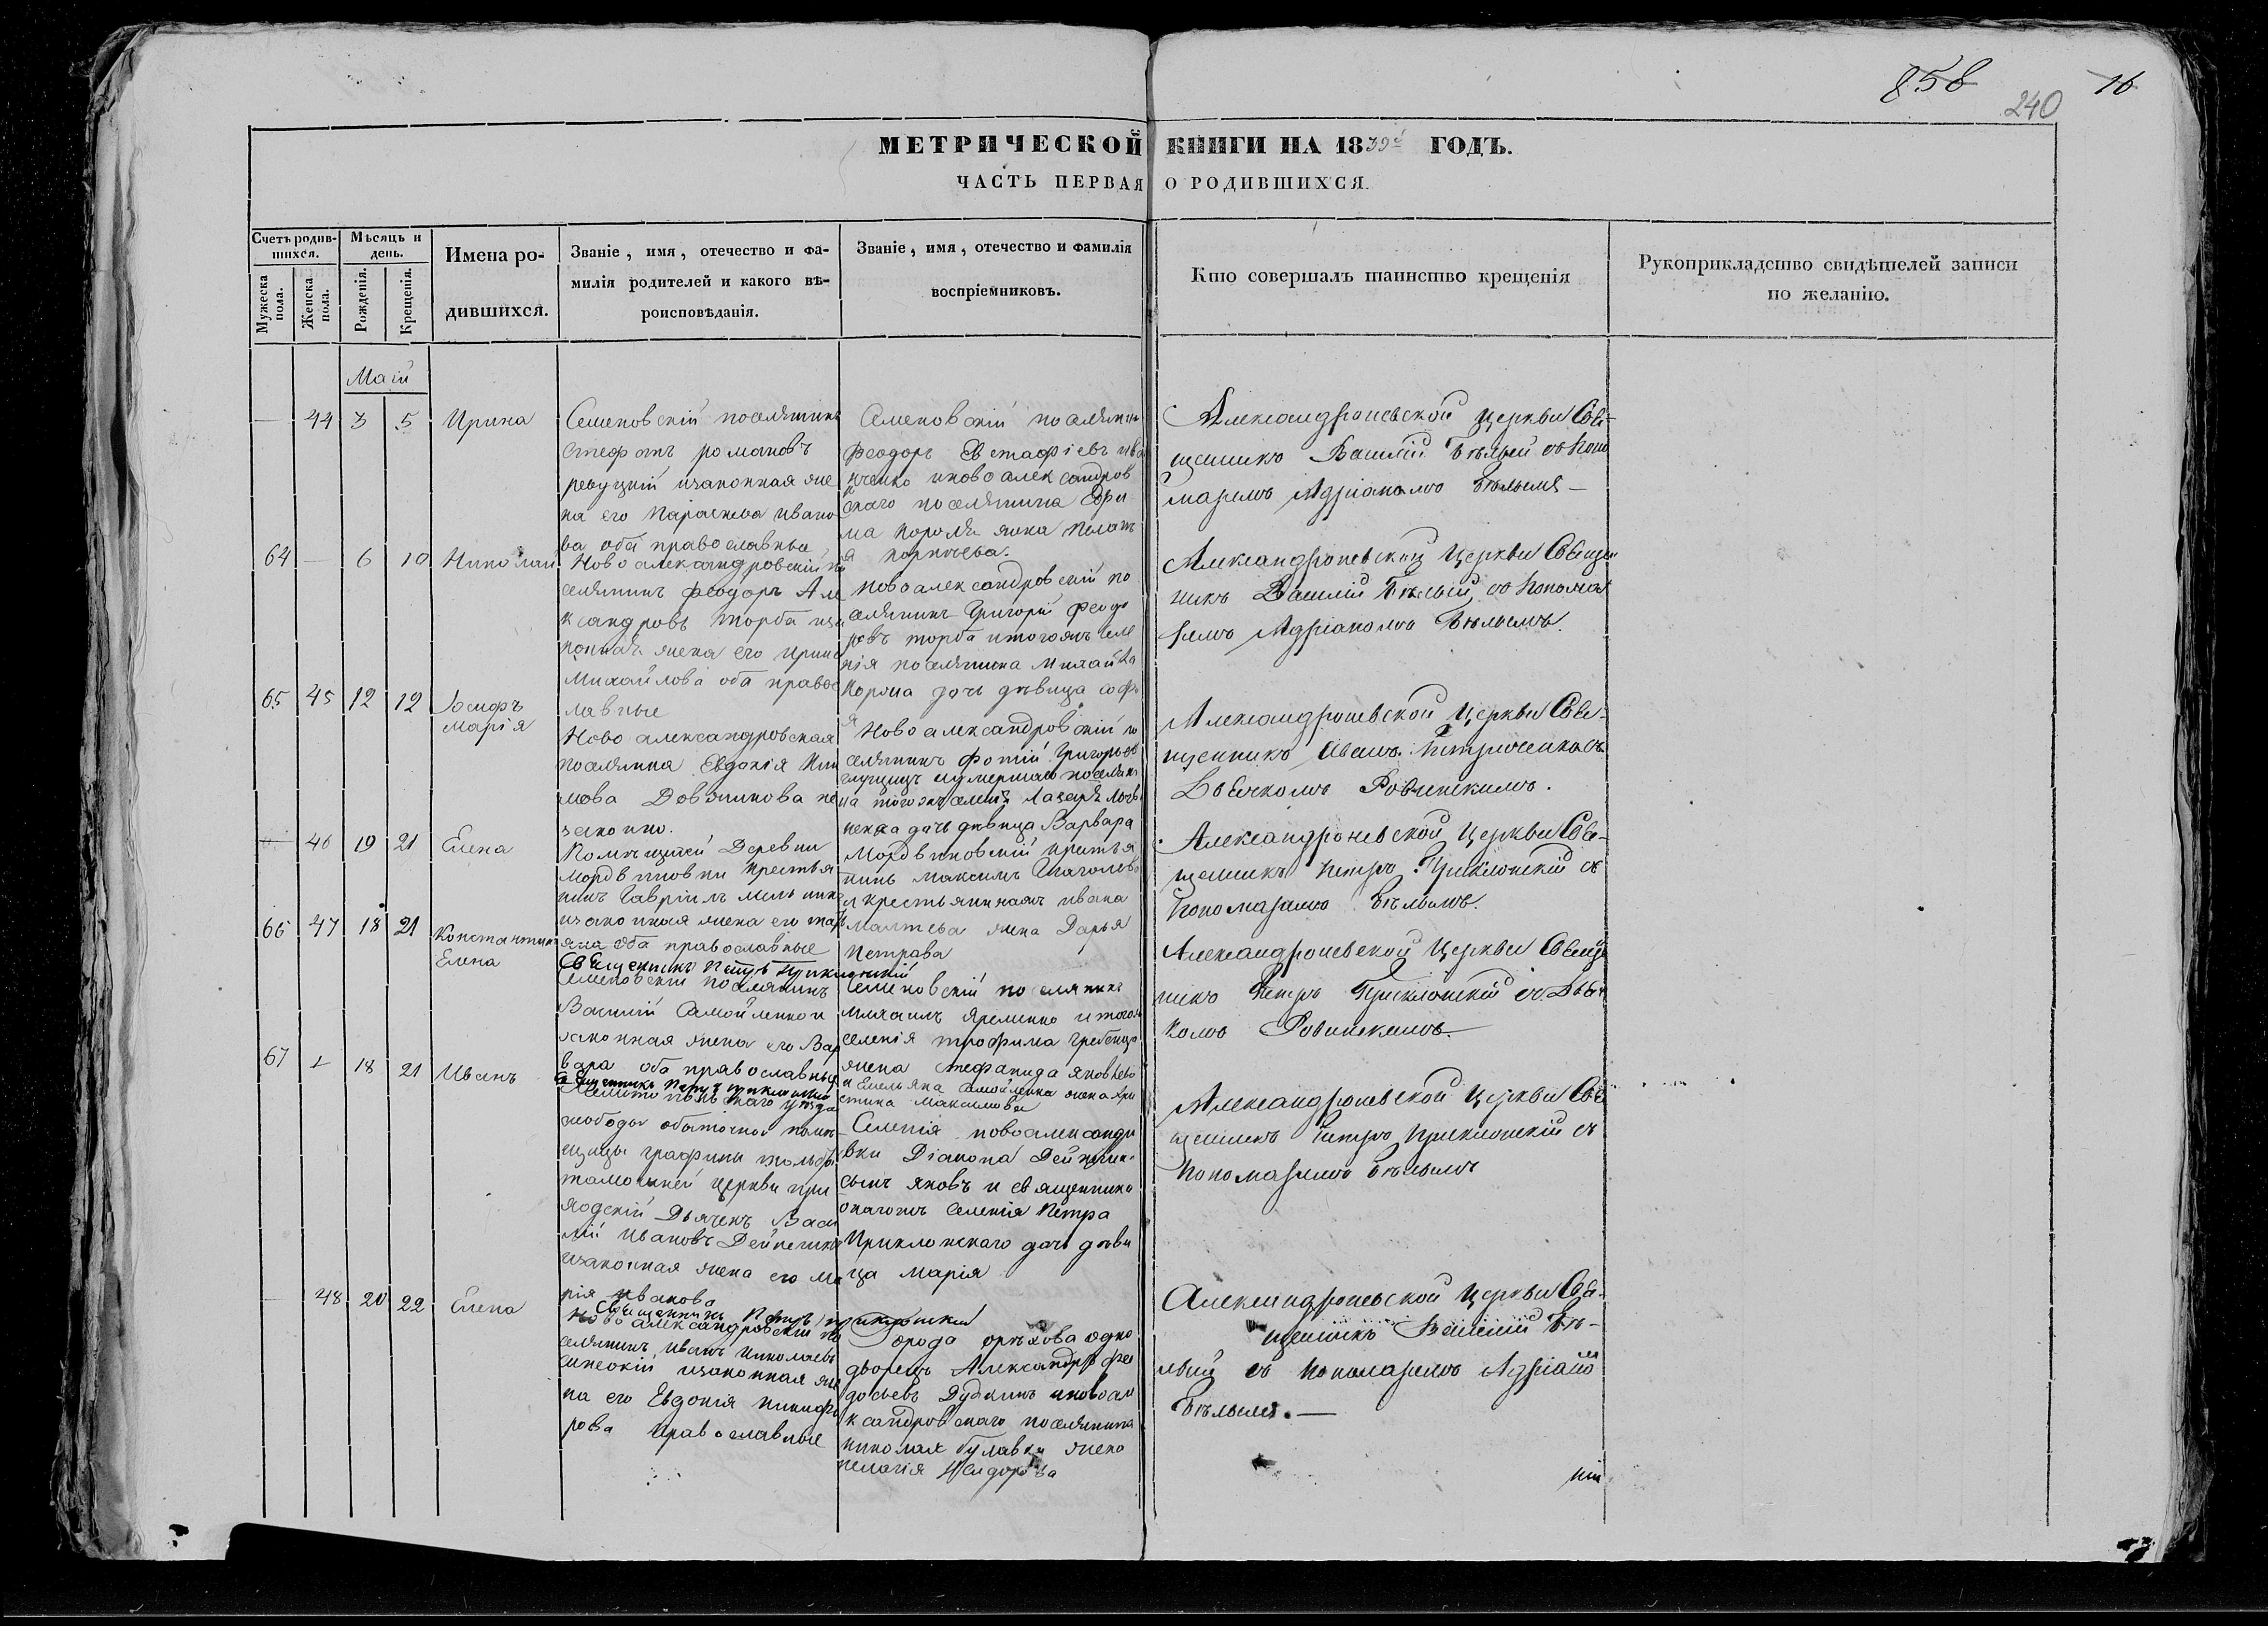 858
240
16
МЕТРИЧЕСКОЙ КНИГИ НА 1839й ГОДЪ.
ЧАСТЬ ПЕРВАЯ О РОДИВШИХСЯ.
Счетъ родив-
шихся.
Мужеска пола.
Женска пола.
Мѣсяцъ и
день.
Рожденія.
Крещенія.
Имена ро-
дившихся.
Званіе, имя, отечество и фа-
милія родителей и какого вѣ-
роисповѣданія.
Званіе, имя, отечество и фамилія
воспріемниковъ.
Кто совершалъ таинство крещенія
Рукоприкладство свидѣтелей записи
по желанію.
Маій
— 44 3 5 Ирина
Семеновскій поселянинъ
Стефанъ романовъ
ревуцкій изаконная же
на его Параскева ивано
ва оба православные
Семеновскій поселянин
Феодоръ Евстафіевъ ива
нченко иновоалександров
скаго поселянина Ефи
ма Короля жена Пелаг
я
Александроневской Церкви Свя-
щенникъ Василій Бѣлый съ Поно
маремъ Адріаномъ Бѣлымъ —
64 — 6 10 Николай
Новоалександровскій по
селянинъ Феодоръ Але
ксандровъ торба иза
конная жена его ирина
Михайлова оба правос
лавные
Новоалександровскій по
селянинъ Григорій Феодо
ровъ торба итогожъ селе
нія поселянина Михайла
Короля дочь дѣвица соф
я
Александроневской Церкви Священ
никъ Василій Бѣлый, съ Понома
ремъ Адріаномъ Бѣлымъ.
65 45 12 12 Іосифъ
Марія
Ново александровская
поселянка Евдокія
мова не
законно.
Новоалександровскій по
селянинъ Фотій Григорьев
умершаго поселяни
на тогожъ селенія Лазаря
дочь дѣвица Варвара
Александроневской Церкви Свя-
щенникъ Іванъ Петриченко съ
Дьячкомъ Ровинскимъ.
— 46 19 21 Елена
Помѣщичей Деревни
Мордвиновки крестья
нинъ Гавріилъ мельник
изаконная жена его тать
яна оба православные
Священникъ Петръ Приклонскій
Мордвиновскій крестья
нинъ Максимъ
и крестьянинажъ ивана
жена Дарья
Петрова
Александроневской Церкви Свя-
щенникъ Петръ Приклонскій съ
Пономаремъ Бѣлымъ.
66 47 18 21 Константинъ
Елена
Семеновскій поселянинъ
Василій Самойленко и
законная жена его Вар
вара оба православные
Священникъ Петръ Приклонскій
Семеновскій поселянинъ
Михаилъ Яременко итогожъ
селенія трофима гребенца
жена стефанида яковлева
и Емельяна Самойленка жена Хри
стина Максимова
Александроневской Церкви Священ
никъ Петръ Приклонскій съ Дьяч
комъ Ровинскимъ —
67 — 18 21 Иванъ
Мелитопольскаго уѣзда
слободы обиточной помѣ
щицы графини
тамошней церкви при
ходскій Дьячекъ Васи
лій Ивановъ Дейнегин
изаконная жена его Ма
рія Иванова
Священникъ Петръ Приклонскій
Селенія новоалександро
вки Діакона Дейнегин
сынъ яковъ и священника
онагожъ селенія Петра
Приклонскаго дочь дѣви
ца Марія
Александроневской Церкви Свя
щенникъ Петръ Приклонскій съ
Пономаремъ Бѣлымъ
— 48 20 22 Елена
Новоалександровскій по
селянинъ Иванъ Николаевъ
изаконная же
на его Евдокія никифо
рова Православные
Города орѣхова одно
дворецъ Александръ Фео
досьевъ Дудкинъ иновоале
ксандровскаго поселянина
николая булавки жена
пелагія Исидорова
Александроневской Церкви Свя-
щенникъ Василій Бѣ-
лый съ Пономаремъ Адріано
Бѣлымъ. —